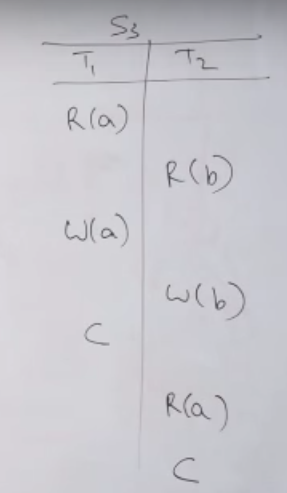 S3
T1 T2
R(a)
R(b)
W(a)
W(b)
C
R(a)
C